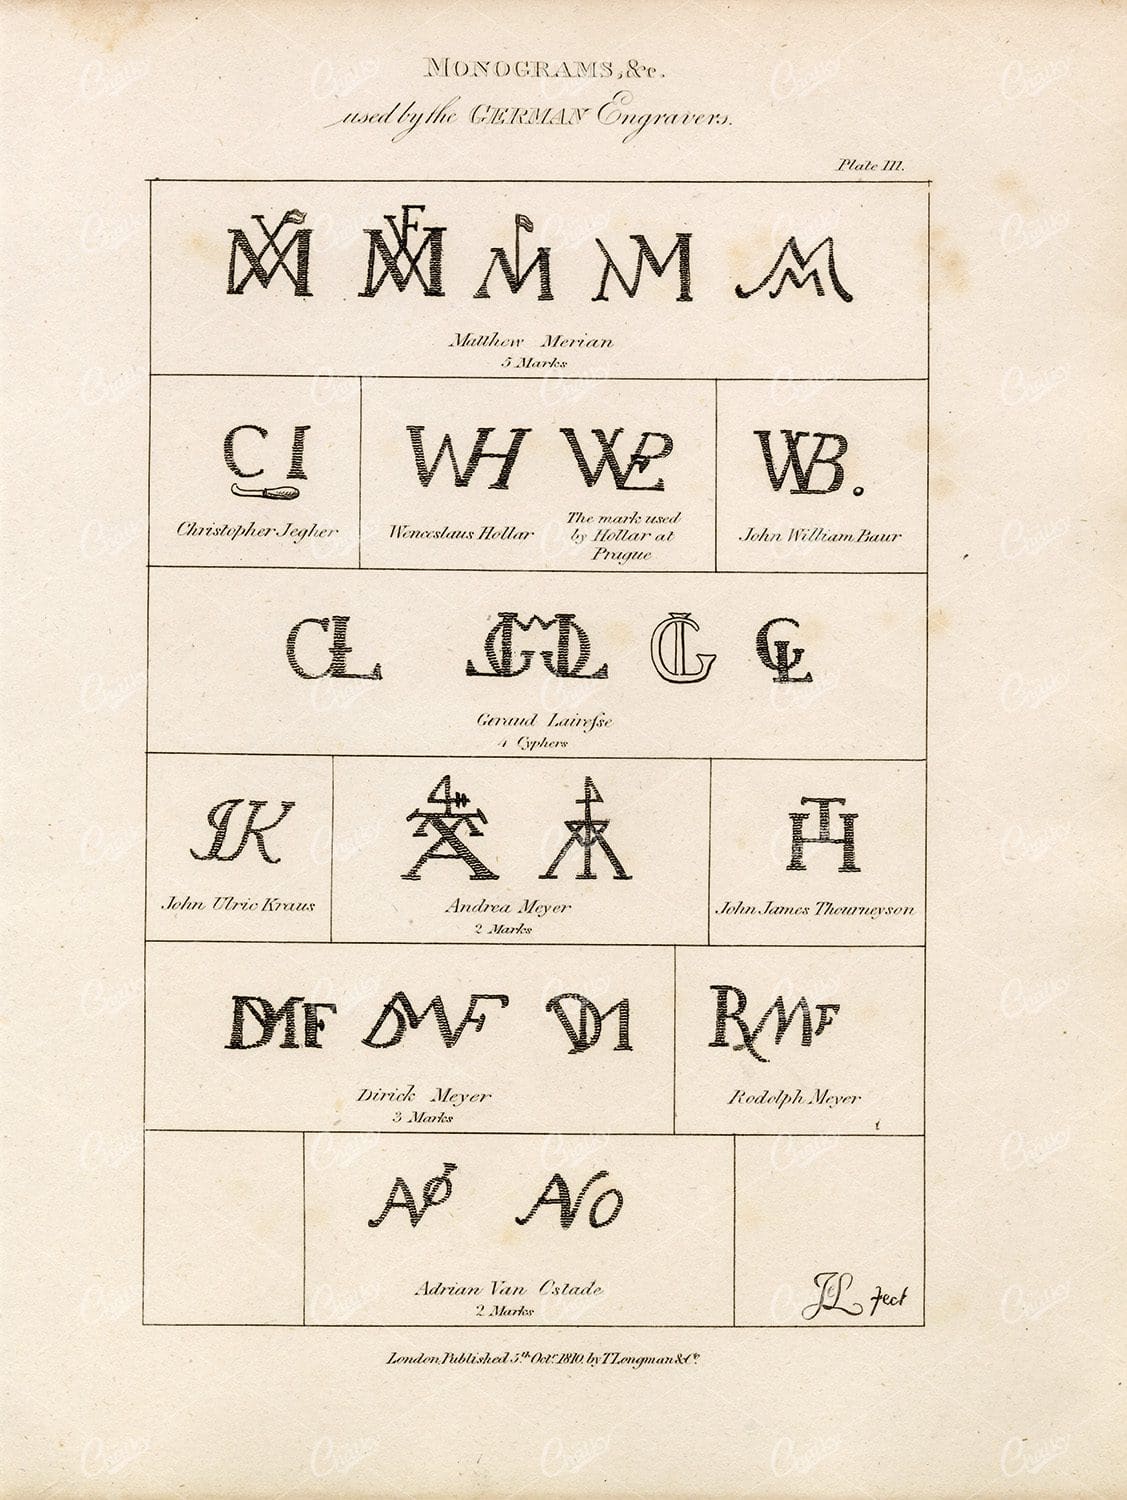 MONOGRAMS, &c.
used by the GERMAN Engravers.
Plate III.
Matthew Merian
5 Marks
CI
WH
WB.
Christopher Jegher
Wenceslaus Hollar
The mark used
by Hollar at
Prague
John William Baur
CL
GL
GL
Geraud Laireſse
4 Cyphers
IK
John Ulric Kraus
Andrea Meyer
2 Marks
TH
John James Theurneyson
DMF
DMF
DM
RMF
Dirick Meyer
3 Marks
Rodolph Meyer
AVO
AVO
Adrian Van Ostade
2 Marks
JL fect
London, Published 5th Octr. 1810, by T Longman & Co.